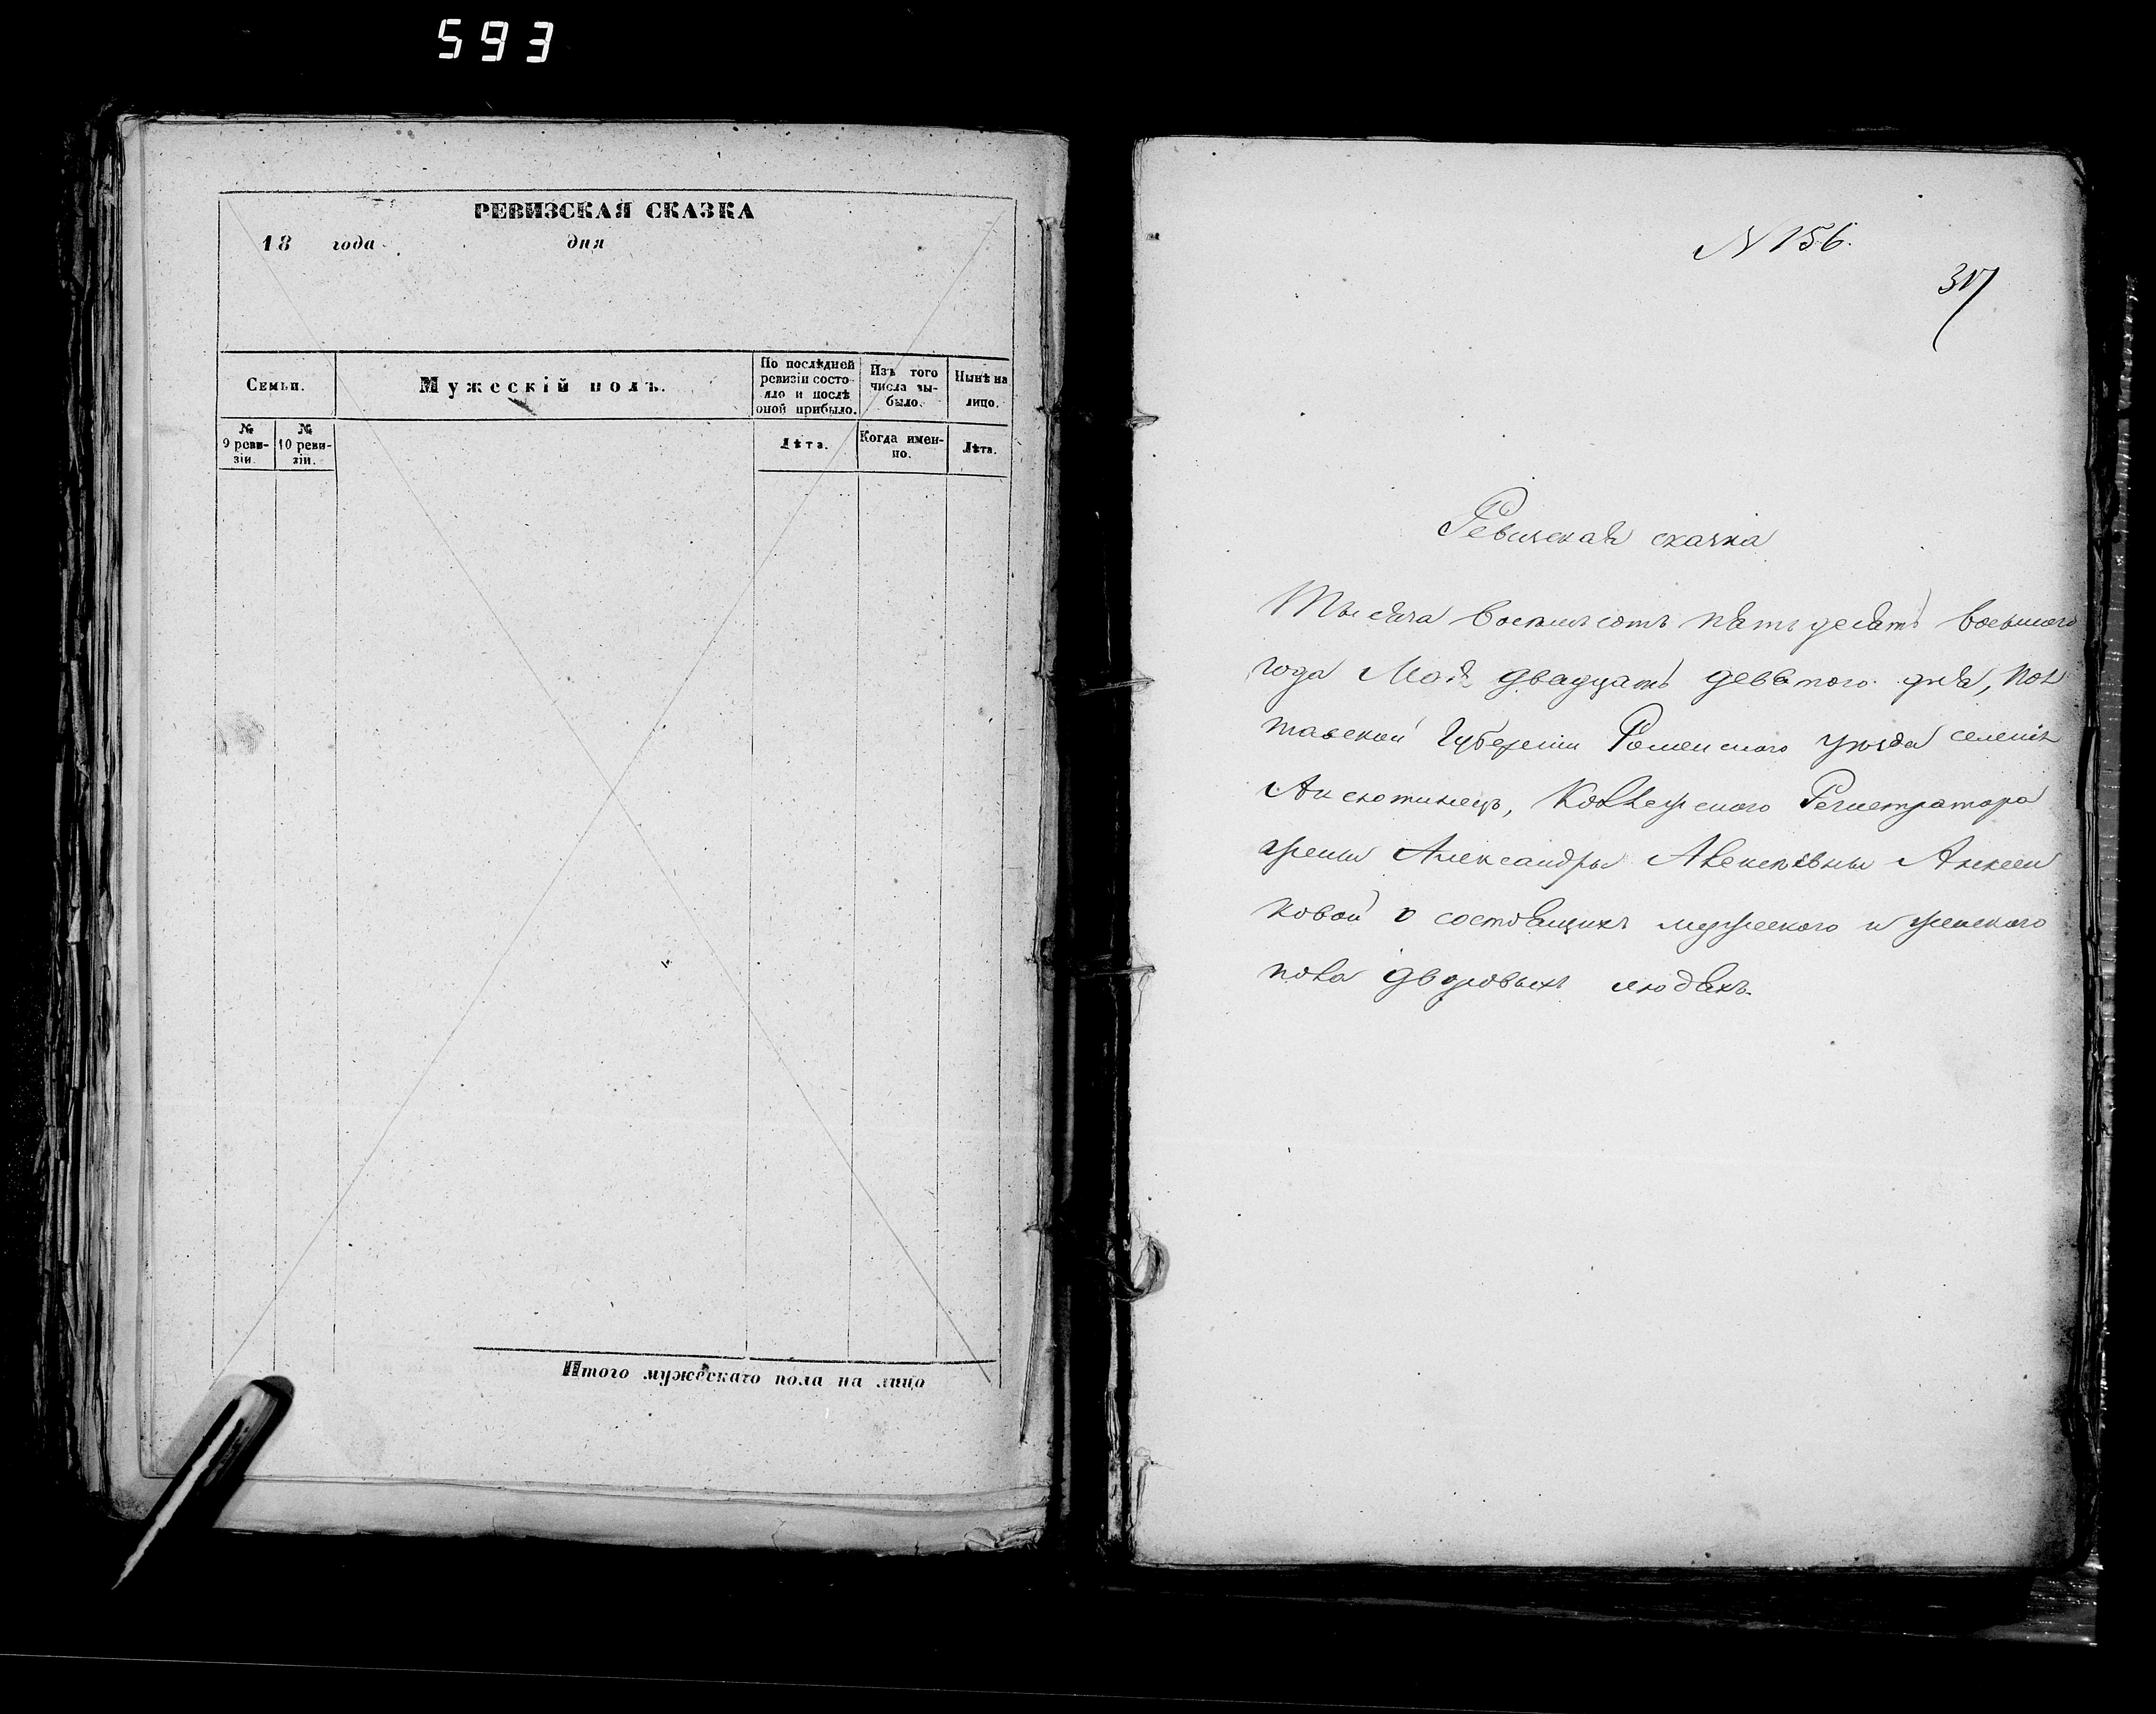 593
РЕВИЗСКАЯ СКАЗКА
18 года дня
Семьи.
Мужескій полъ.
По послѣдней ревизіи состояло и послѣ оной прибыло.
Изъ того числа выбыло.
Нынѣ на лицо.
№ 9 ревизіи.
№ 10 ревизіи.
Лѣта.
Когда именно.
Лѣта.
Итого мужескаго пола на лицо
N 156.
317
Ревизская сказка
Тысяча восемьсотъ пятьдесятъ восьмого
года Мая двадцать девятого дня, Пол
тавской Губерніи Роменского уѣзда селенія
Аксютинецъ, Коллежского Регистратора
жены Александры Алексѣевны
ковой о состоящихъ мужеского и женского
пола дворовыхъ людяхъ.